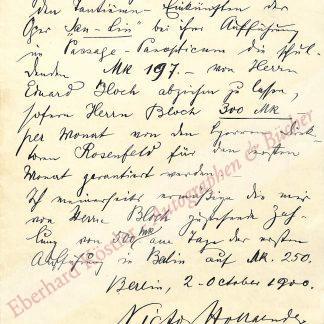 den Tantièmen-Einkünften der
Oper "San-Lin" bei ihrer Aufführung
in Passage-Panopticum die schul-
denden Mk 197.- von Herrn
Eduard Bloch abziehen zu lassen,
sofern Herrn Bloch 300 Mk
per Monat von den Herren Direk-
toren Rosenfeld für den ersten
Monat garantiert werden.
Ich meinerseits ermäßige die mir
von Herrn Bloch zustehende Zah-
lung von 300 Mk am Tage der ersten
Aufführung in Berlin auf Mk. 250.
Berlin, 2. October 1900.
Victor Hollaender
Eberhard Köstler Autographen & Bücher